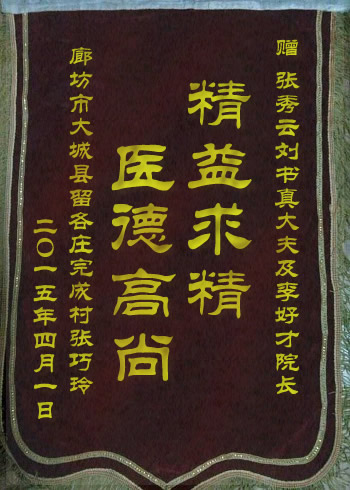 赠 张秀云刘书真大夫及李好才院长
精益求精
医德高尚
廊坊市大城县留各庄完成村张巧玲
二〇一五年四月一日